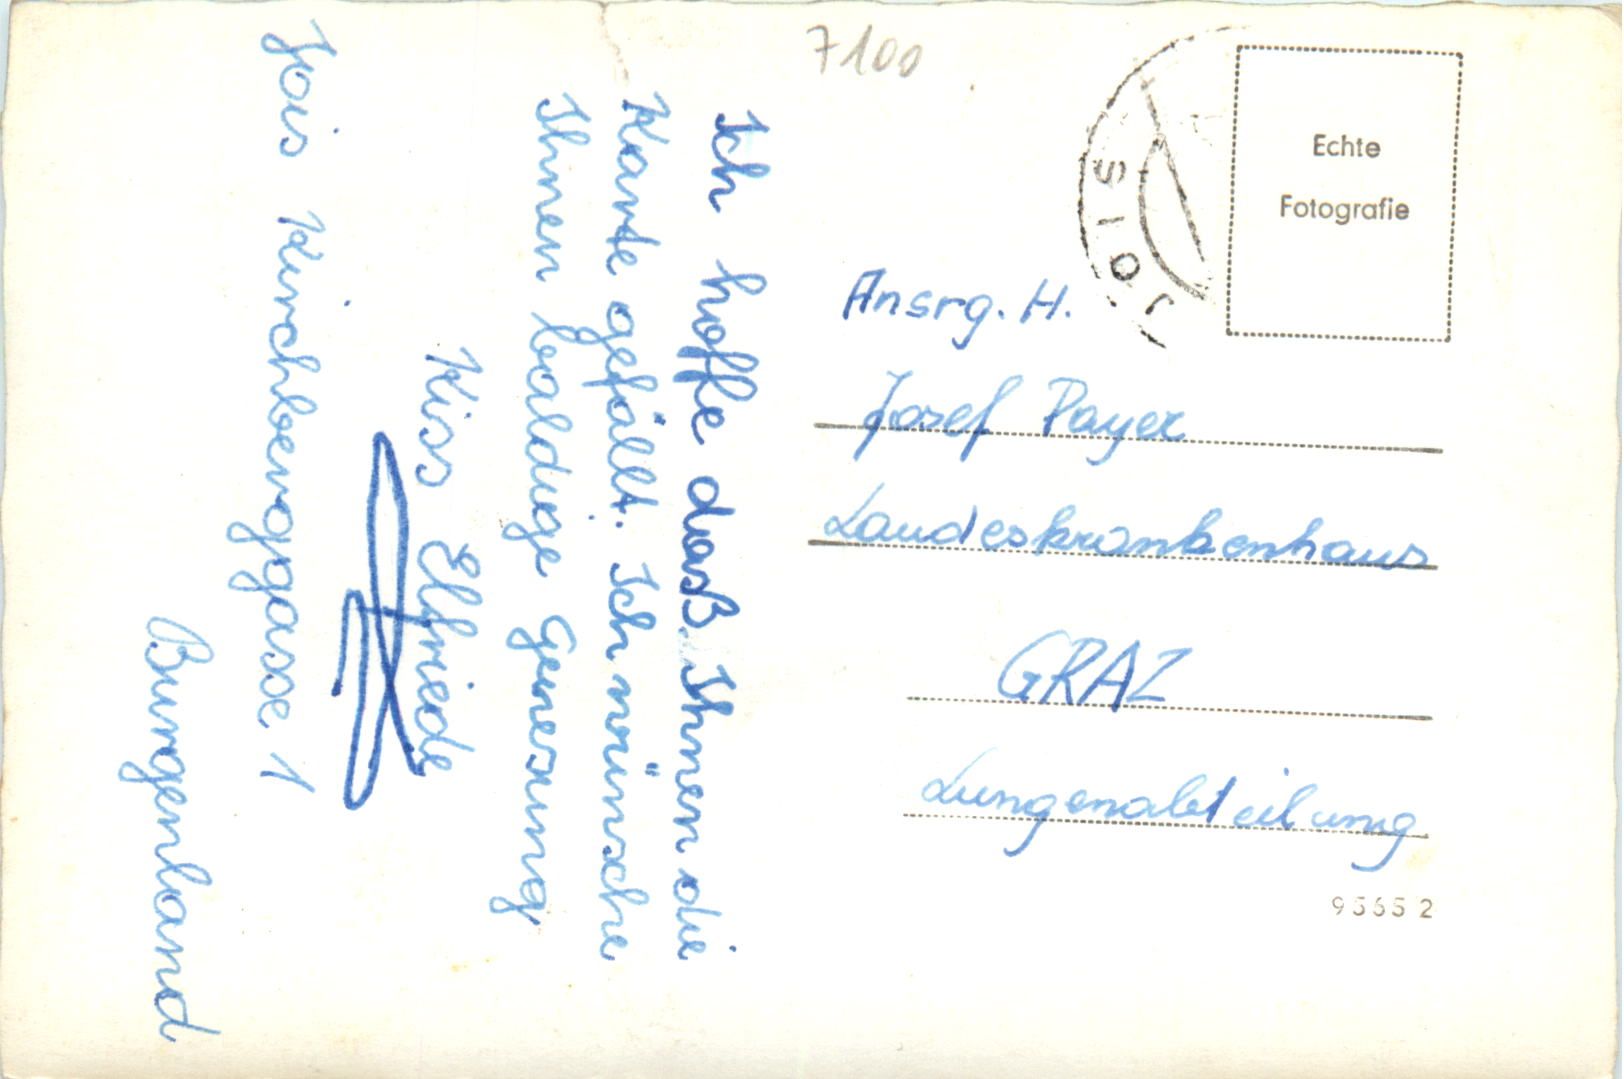 7100
Ich hoffe daß Ihnen die
Karte gefällt. Ich wünsche
Ihnen baldige Genesung
Kiss Elfriede
Jois Kirchbergasse 1
Burgenland
JOIS
Echte
Fotografie
Ansrg. H.
Josef Payer
Landeskrankenhaus
GRAZ
Lungenabteilung
95652